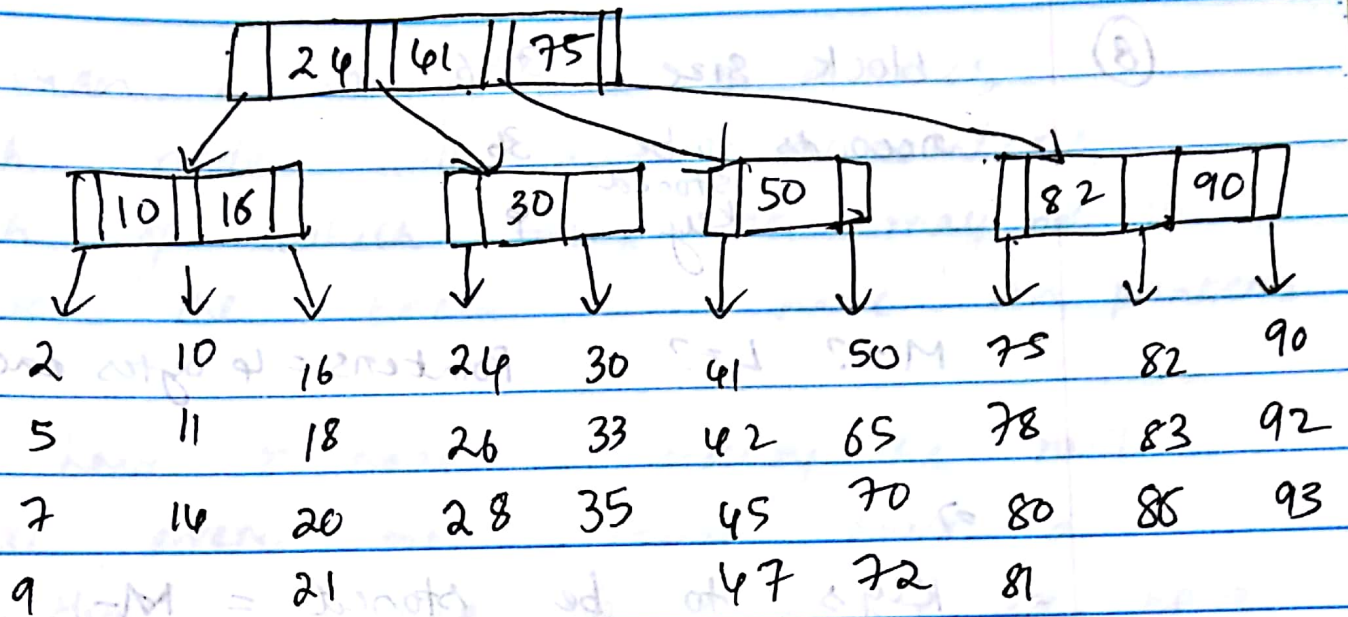 24 41 75
10 16 30 50 82 90
2 10 16 24 30 41 50 75 82 90
5 11 18 26 33 42 65 78 83 92
7 14 20 28 35 45 70 80 86 93
9 21 47 72 81